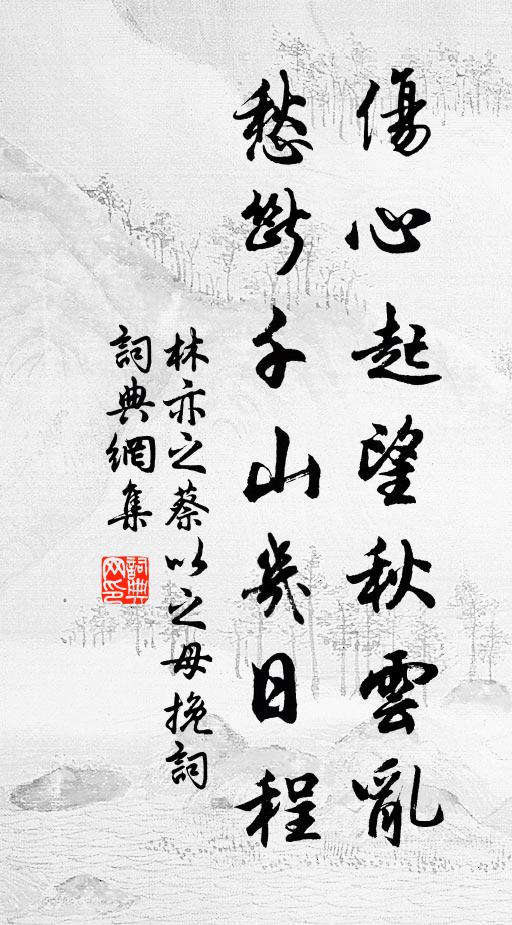 傷心起望秋雲亂
愁斷千山幾日程
林亦之蔡以之母挽詞
詞典網集
詞典网印